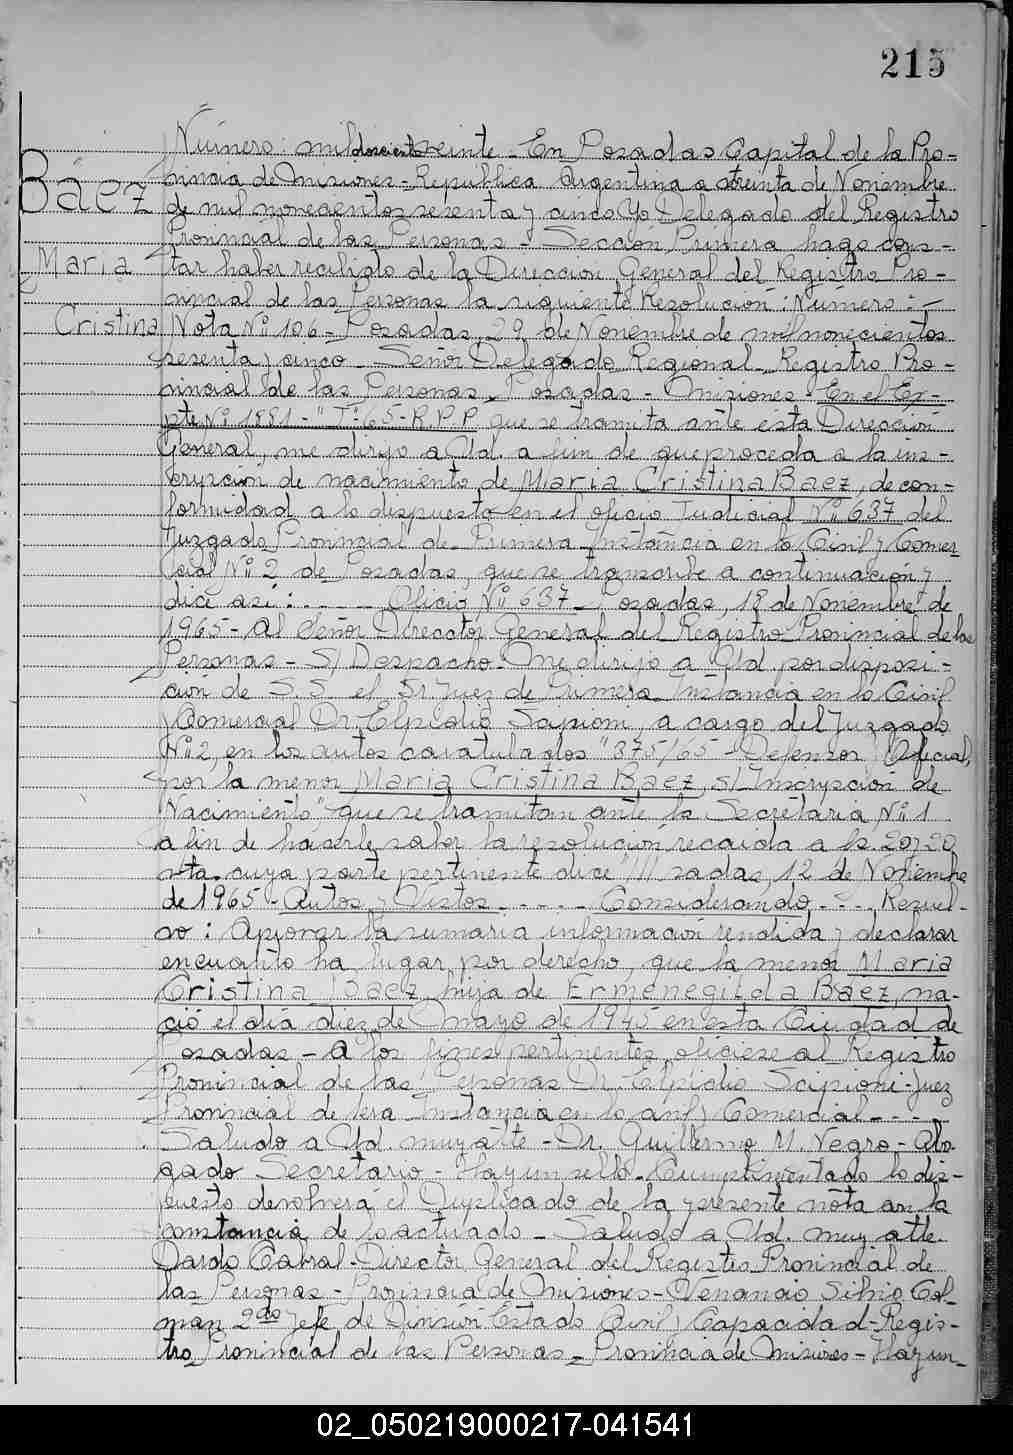 215
Número: mil doscientos veinte - En Posadas Capital de la Pro-
Baez
vincia de Misiones - República Argentina a treinta de Noviembre
de mil novecientos sesenta y cinco Yo Delegado del Registro
Provincial de las Personas - Sección Primera hago cons-
Maria
tar haber recibido de la Dirección General del Registro Pro-
vincial de las Personas la siguiente Resolución: Número: -
Cristina
Nota Nº 106 - Posadas, 29 de Noviembre de mil novecientos
sesenta y cinco - Señor Delegado Regional - Registro Pro-
vincial de las Personas - Posadas - Misiones - En el Ex-
pte Nº 1881 - "I" - 65 - R.P.P. que se tramita ante esta Dirección
General, me dirijo a Ud. a fin de que proceda a la ins-
cripción de nacimiento de Maria Cristina Baez, de con-
formidad a lo dispuesto en el oficio Judicial Nº 637 del
Juzgado Provincial de Primera Instancia en lo Civil y Comer
cial Nº 2 de Posadas, que se transcribe a continuación y
dice así: - - - - Oficio Nº 637 - Posadas, 18 de Noviembre de
1965 - Al Señor Director General del Registro Provincial de las
Personas - S/ Despacho - Me dirijo a Ud. por disposi-
ción de S.S. el Sr Juez de Primera Instancia en lo Civil
y Comercial Dr. Elpidio Scipioni, a cargo del Juzgado
Nº 2, en los autos caratulados "375/65 - Defensor Oficial,
por la menor Maria Cristina Baez, s/ Inscripción de
Nacimiento", que se tramitan ante la Secretaria Nº 1
a fin de hacerle saber la resolución recaída a fs. 20 y 20
vta. cuya parte pertinente dice "/// sadas, 12 de Noviembre
de 1965 - Autos y Vistos - - - - - Considerando - - - - Resuel-
vo: Aprobar la sumaria información rendida y declarar
en cuanto ha lugar por derecho, que la menor Maria
Cristina Baez, hija de Ermenegilda Baez, na-
ció el día diez de Mayo de 1945 en esta Ciudad de
Posadas - A los fines pertinentes, ofíciese al Registro
Provincial de las Personas Dr. Elpidio Scipioni - Juez
Provincial de 1era Instancia en lo Civil y Comercial - - - -
Saludo a Ud. muy atte - Dr. Guillermo M. Negro - Abo
gado Secretario - Hay un sello - Cumplimentado lo dis-
puesto devolverá el Duplicado de la presente nota con la
constancia de lo actuado - Saludo a Ud. muy atte.
Dardo Cabral - Director General del Registro Provincial de
las Personas - Provincia de Misiones - Venancio Silvio Col-
man 2do Jefe de División Estado Civil y Capacidad - Regis-
tro Provincial de las Personas - Provincia de Misiones - Hay un-
02_050219000217-041541